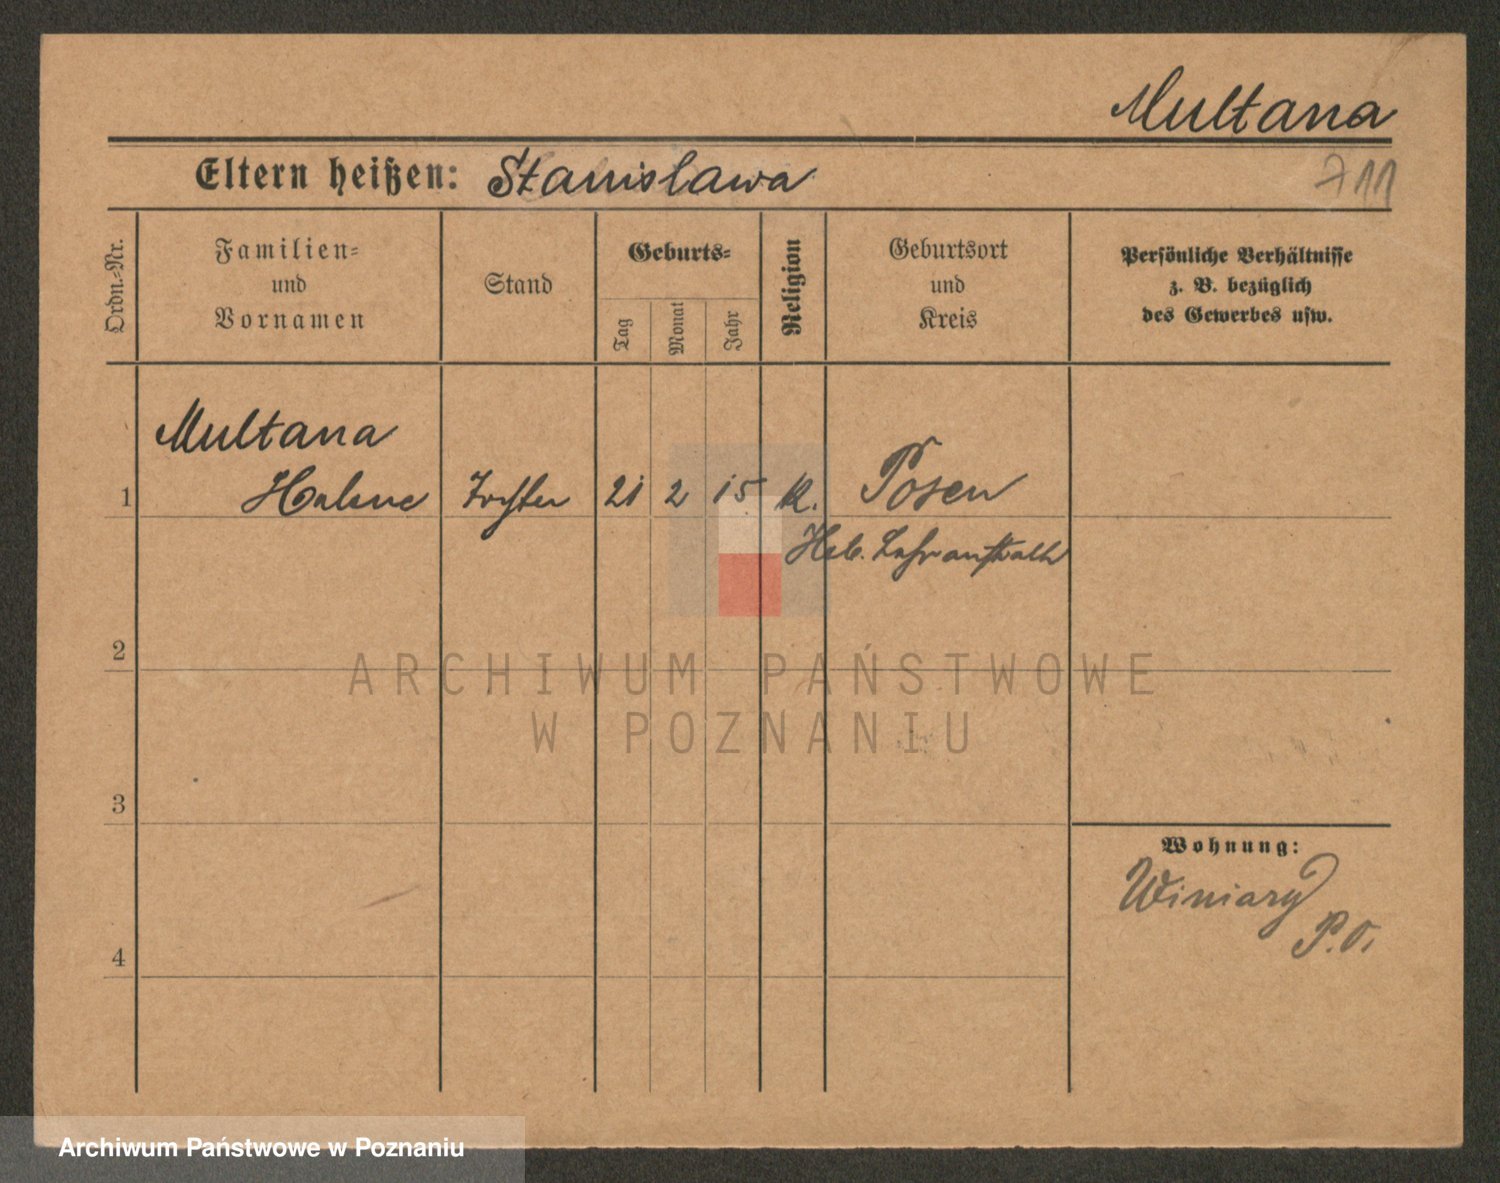 Multana
Eltern heißen: Stanislawa
711
Ordn.-Nr.
Familien-
und
Vornamen
Stand
Geburts-
Tag
Monat
Jahr
Religion
Geburtsort
und
Kreis
Persönliche Verhältnisse
z. B. bezüglich
des Gewerbes usw.
Multana
1 Helene Tochter 21 2 15 k. Posen
Heb. Lehranstalt
2
ARCHIWUM PAŃSTWOWE
W POZNANIU
3
Wohnung:
Winiary
P.O.
4
Archiwum Państwowe w Poznaniu